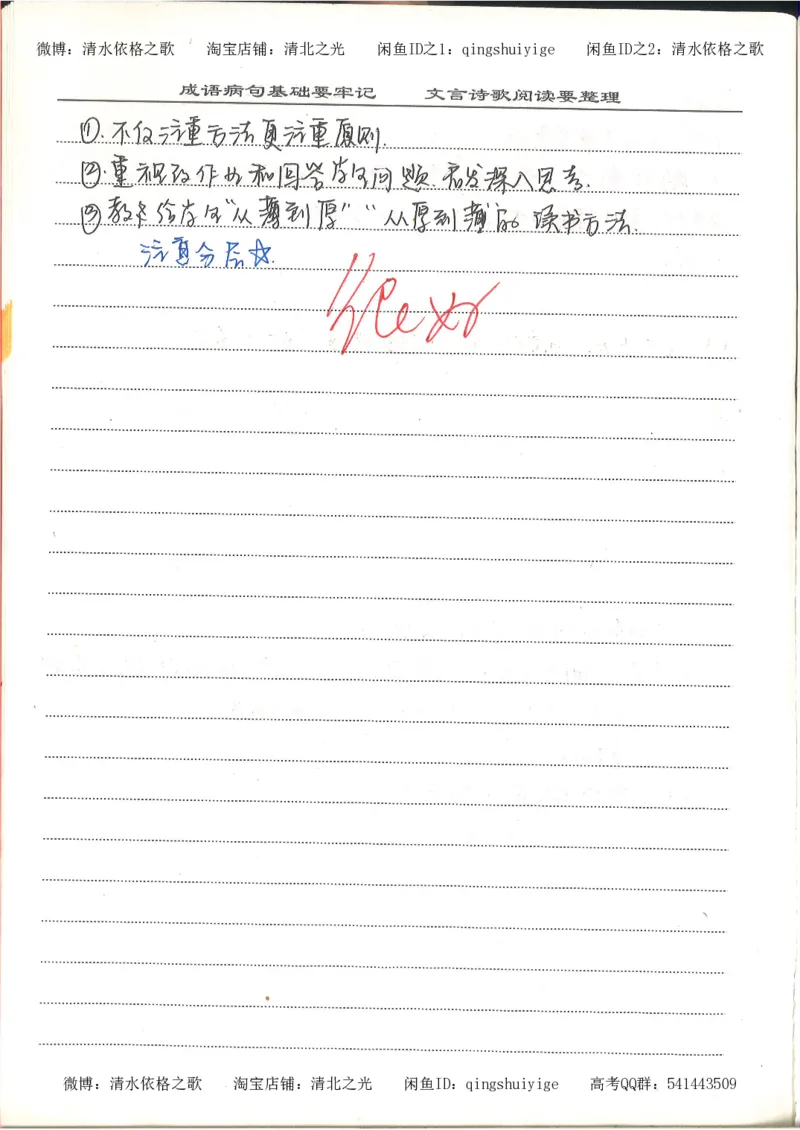 微博：清水依格之歌 淘宝店铺：清北之光 闲鱼ID之1：qingshuiyige 闲鱼ID之2：清水依格之歌
成语病句基础要牢记 文言诗歌阅读要整理
①.不仅注重方法更注重原则.
②.重视改作业和回答学生问题.启发深入思考.
③教会给学生“从薄到厚”“从厚到薄”的读书方法.
注意分层☆.
很好
微博：清水依格之歌 淘宝店铺：清北之光 闲鱼ID：qingshuiyige 高考QQ群：541443509